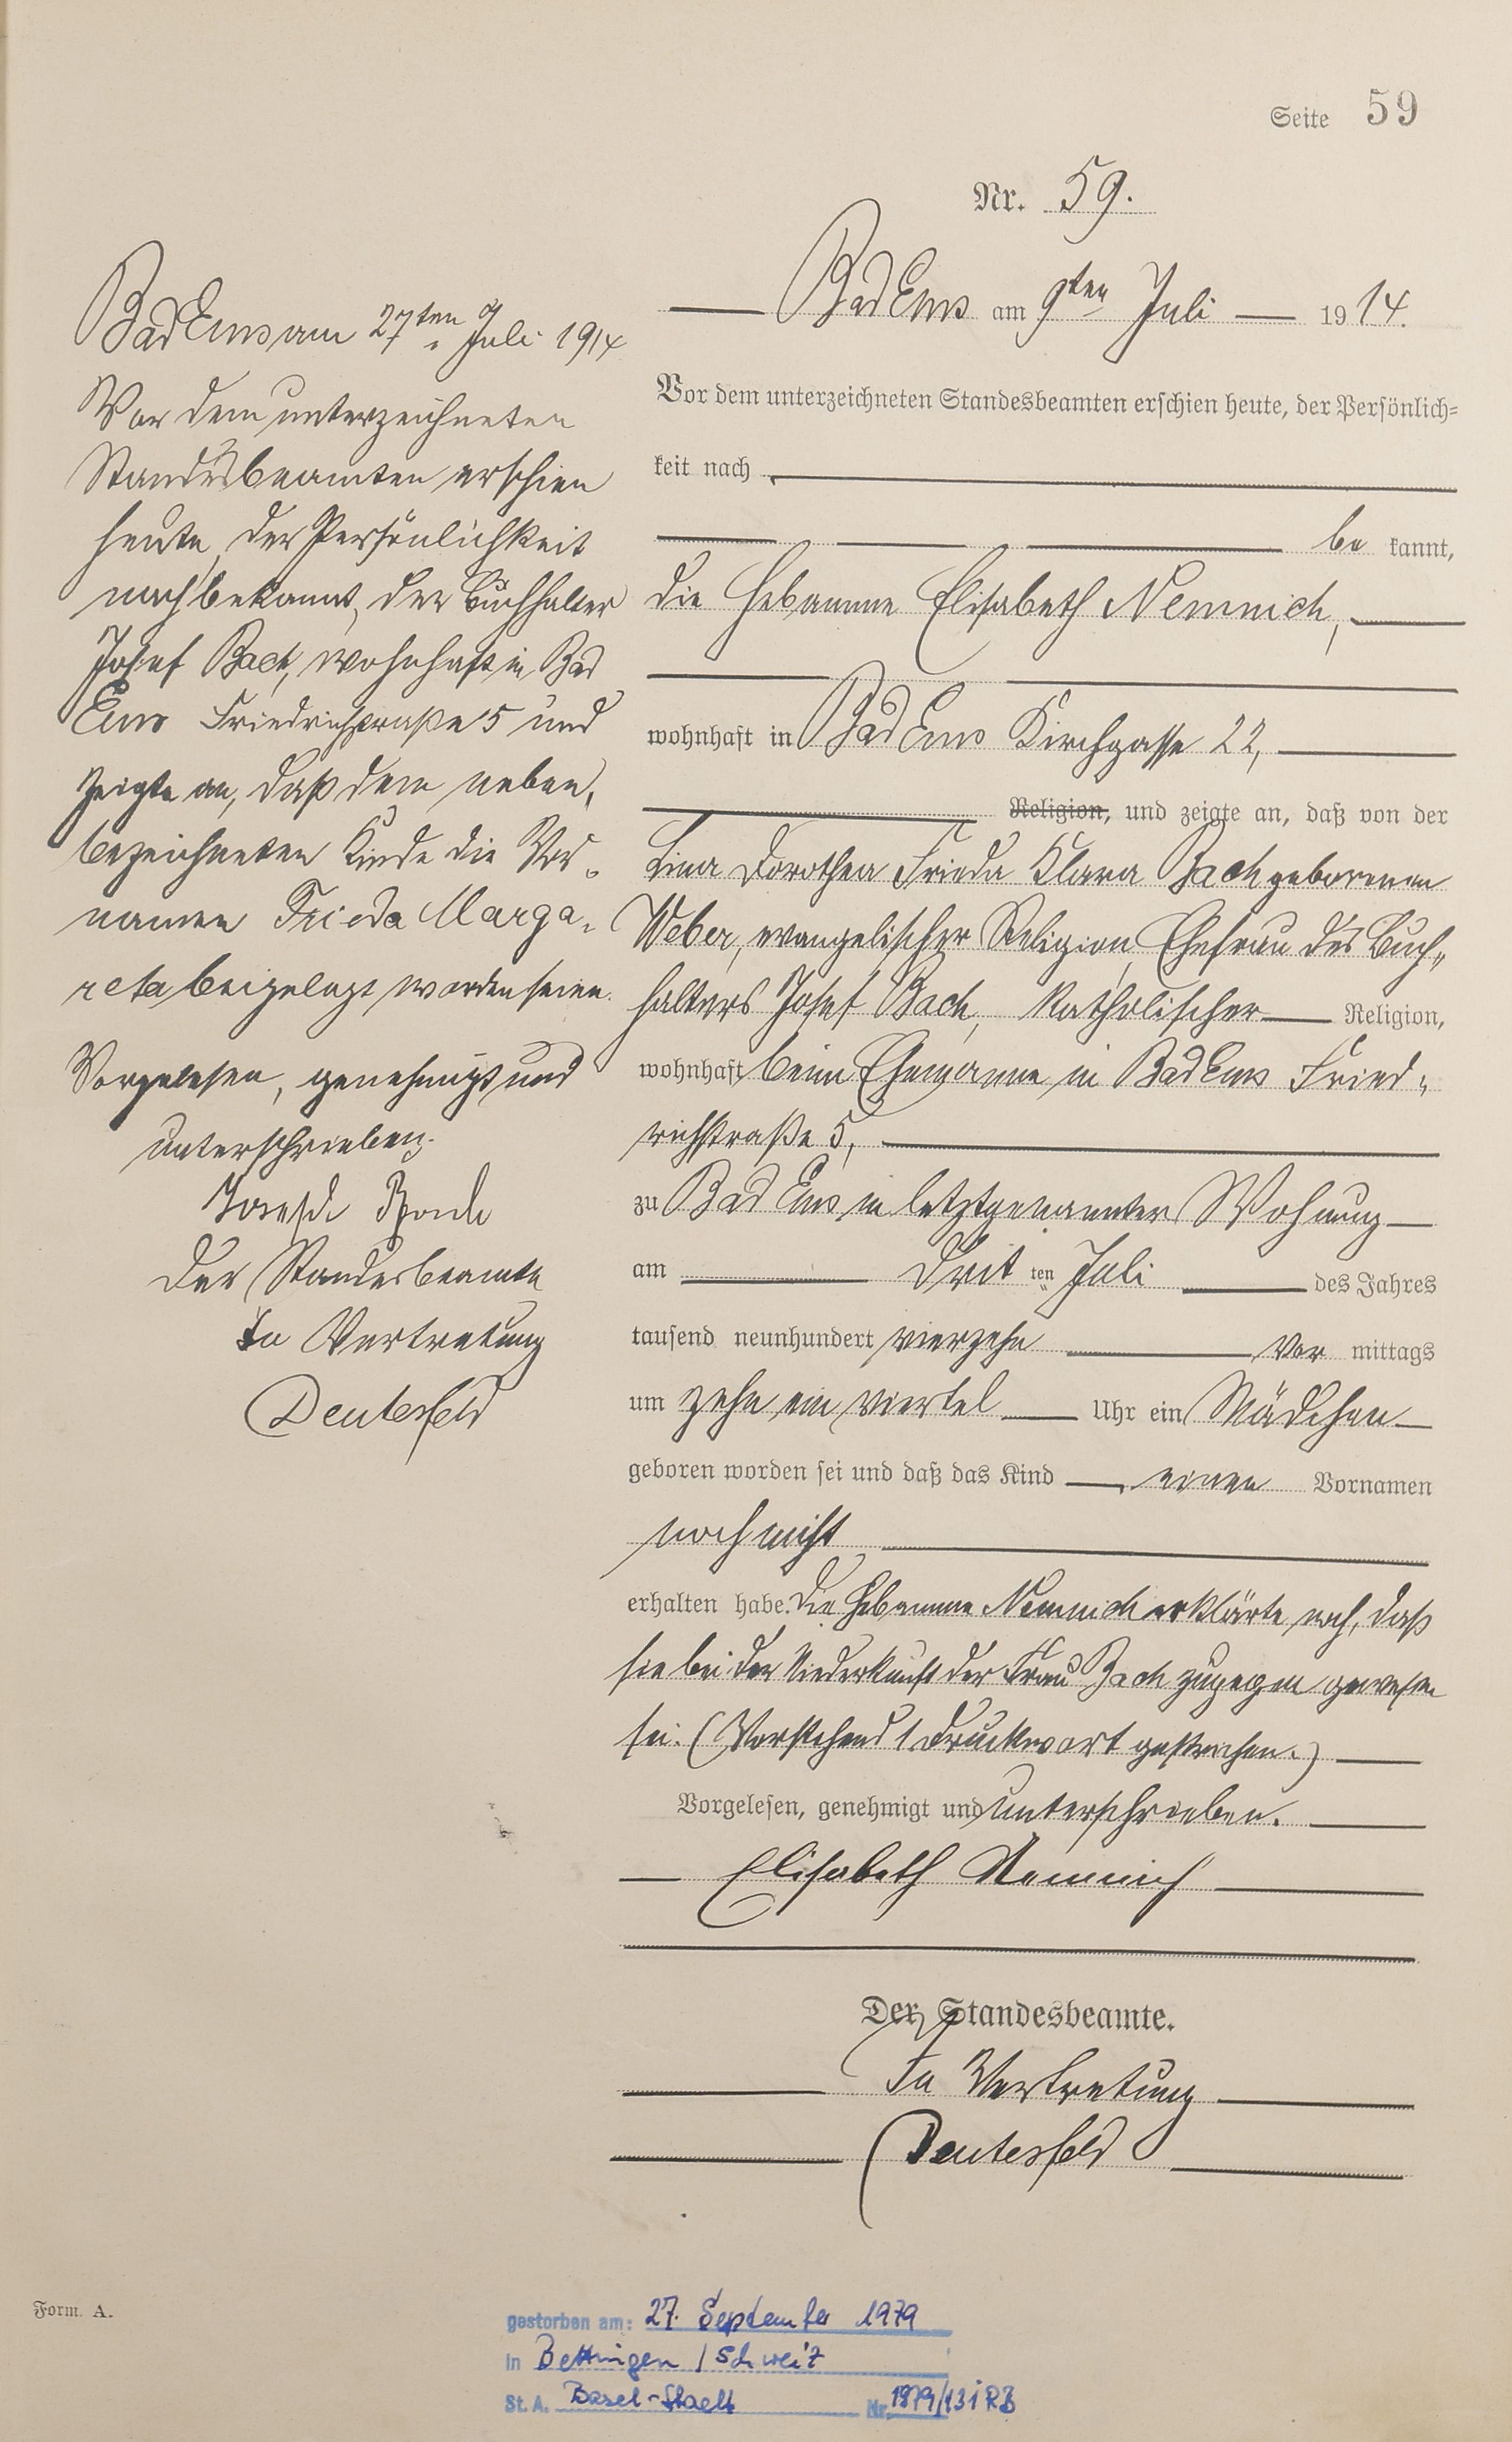 Seite 59
Nr. 59.
Bad Ems am 9ten Juli 1914.
Vor dem unterzeichneten Standesbeamten erschien heute, der Persönlich=
keit nach
be kannt,
die Hebamme Elisabeth Nemnich,
wohnhaft in Bad Ems Kirchgasse 22,
Religion, und zeigte an, daß von der
Lina Dorothea Frieda Klara Bach geborenen
Weber, evangelischer Religion, Ehefrau des Buch„
halters Josef Bach, katholischer Religion,
wohnhaft beim Ehemanne in Bad Ems Fried„
richstraße 5,
zu Bad Ems in letztgenannter Wohnung
am dritten Juli des Jahres
tausend neunhundert vierzehn Vor mittags
um zehn ein viertel Uhr ein Mädchen
geboren worden sei und daß das Kind einen Vornamen
noch nicht
erhalten habe. Die Hebamme Nemnich erklärte noch, daß
sie bei der Niederkunft der Frau Bach zugegen gewesen
sei. (Vorstehend 1 Druckwort gestrichen.)
Vorgelesen, genehmigt und unterschrieben.
Elisabeth Nemnich
Der Standesbeamte.
In Vertretung
Deutesfeld
Bad Ems am 27ten Juli 1914
Vor dem unterzeichneten
Standesbeamten erschien
heute, der Persönlichkeit
nach bekannt, der Buchhalter
Josef Bach, wohnhaft in Bad
Ems Friedrichstraße 5 und
zeigte an, daß dem neben„
bezeichneten Kinde die Vor„
namen Frieda Marga„
reta beigelegt worden seien.
Vorgelesen, genehmigt und
unterschrieben.
Joseph Bach
Der Standesbeamte
In Vertretung
Deutesfeld
Form. A.
gestorben am: 27. September 1979
in Bettingen / Schweiz
St. A. Basel-Stadt Nr. 1979/131 RB